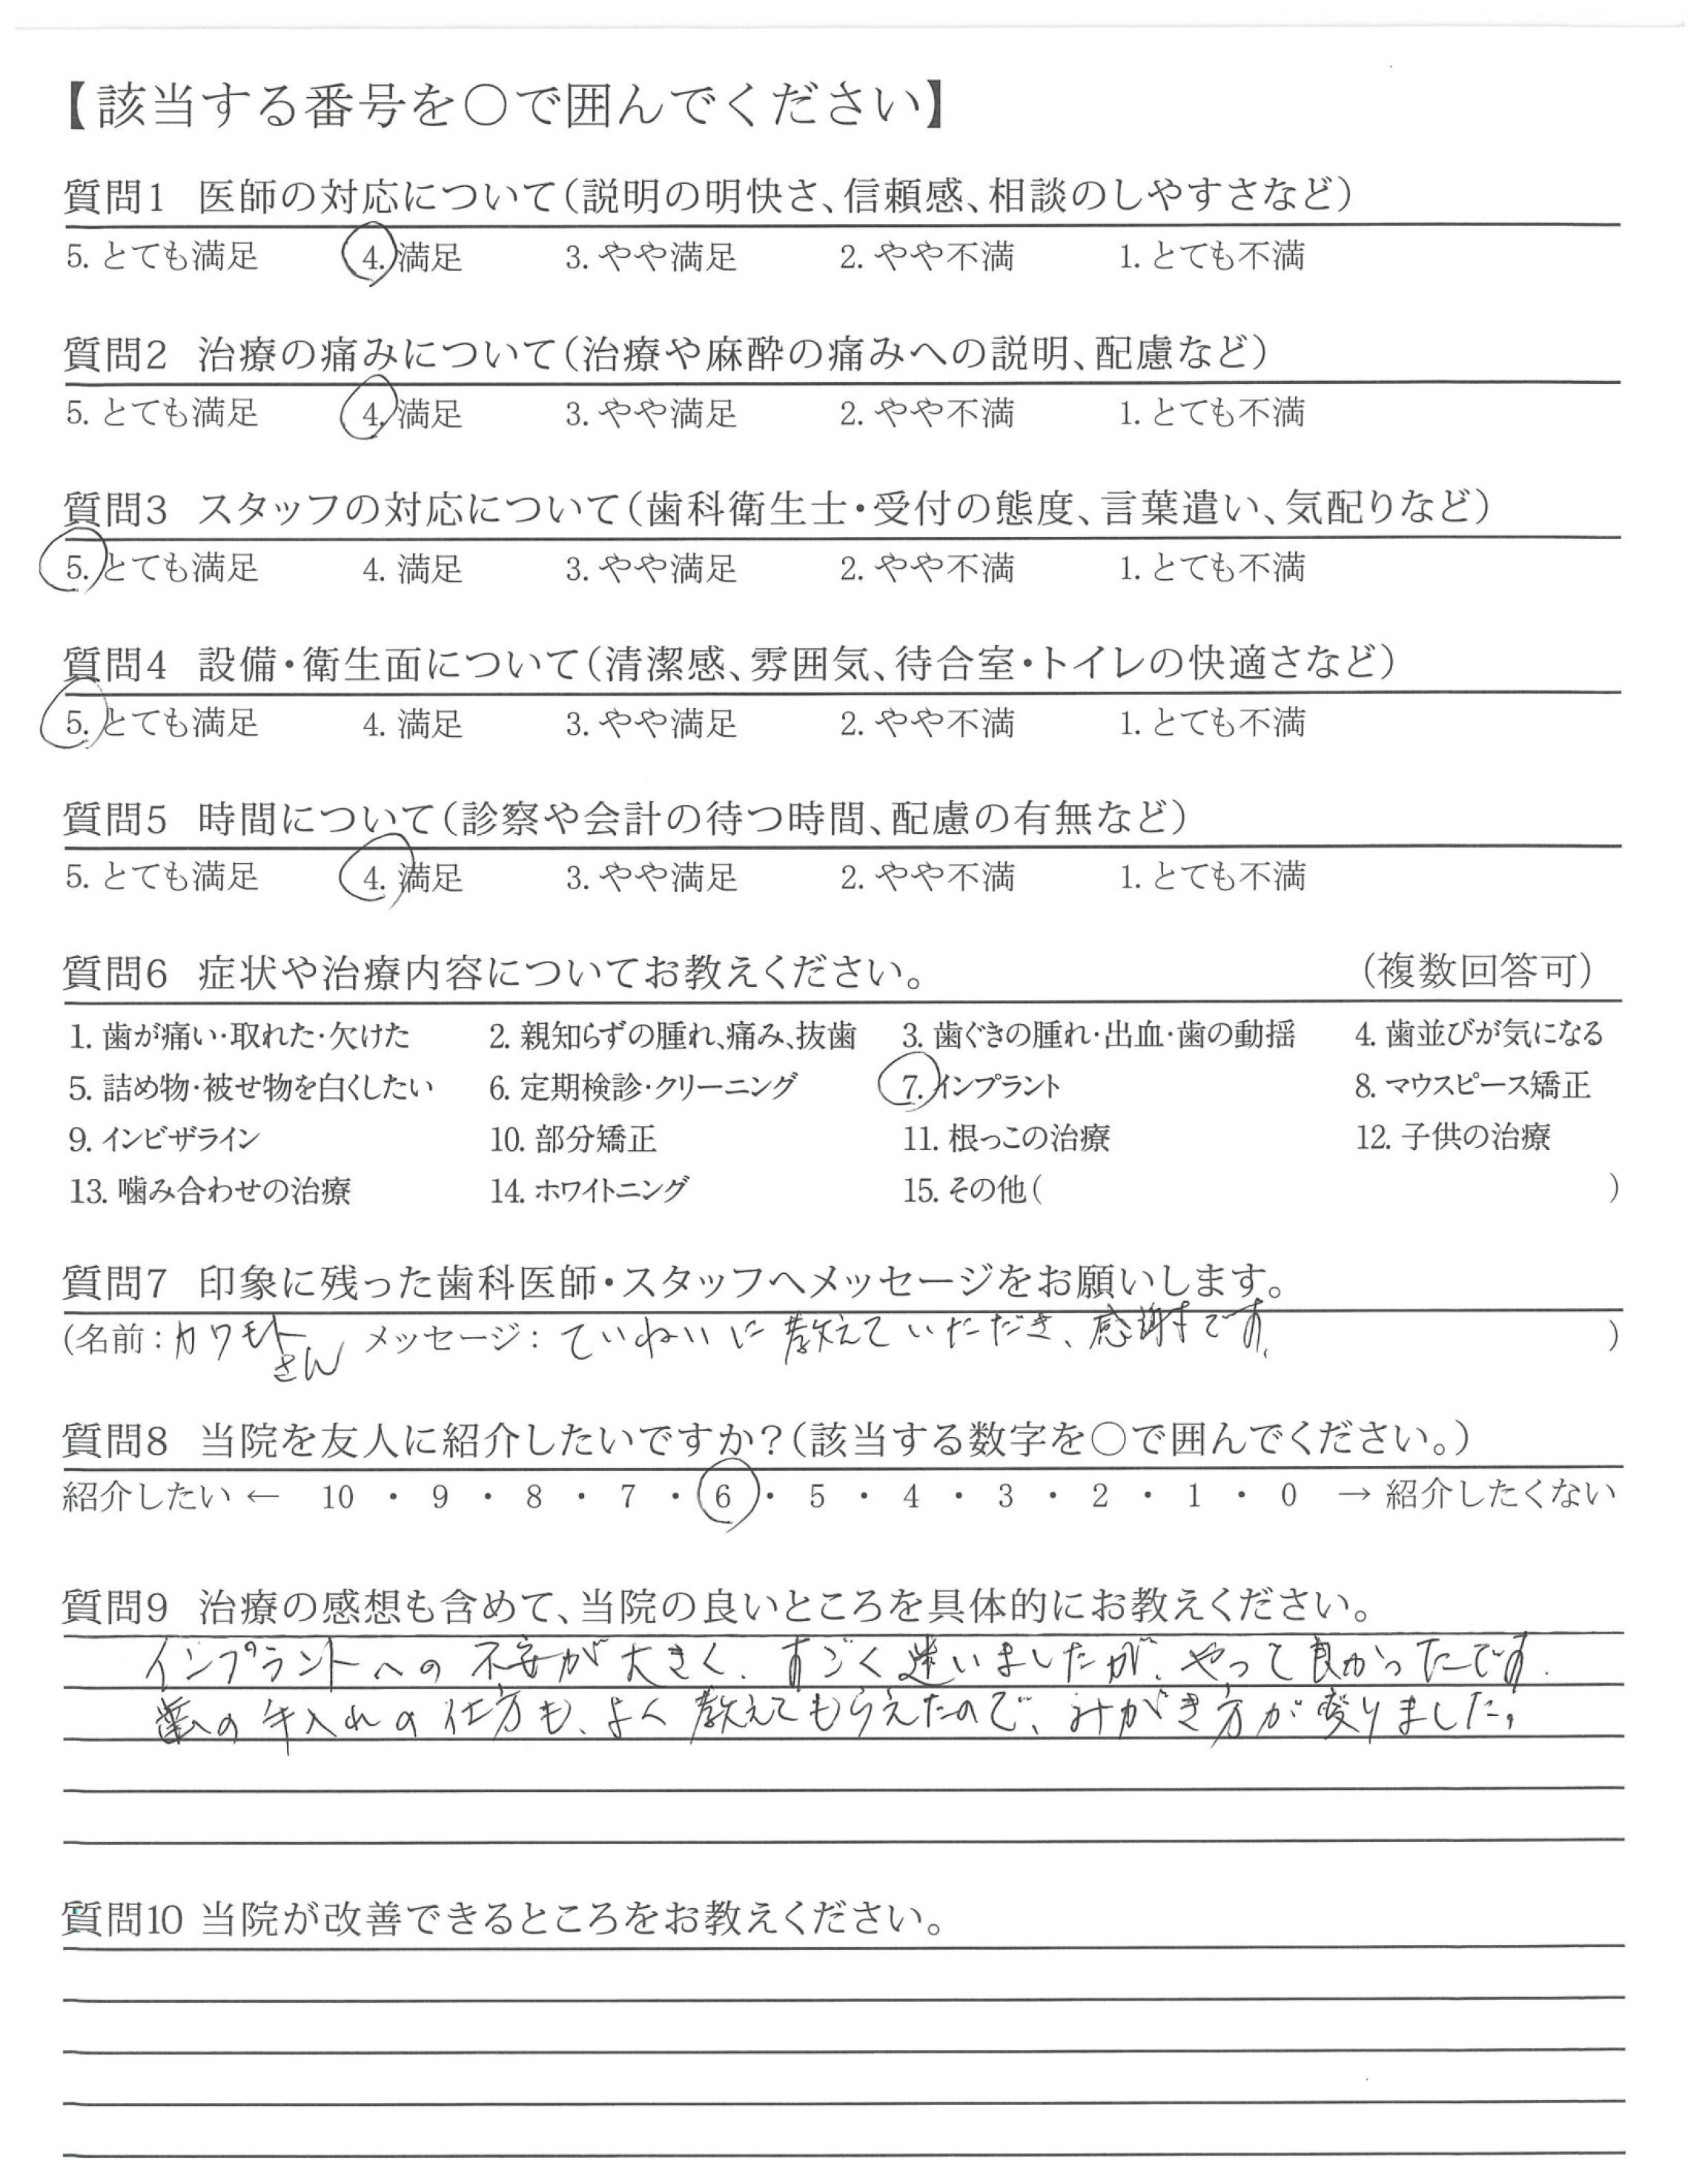 【該当する番号を○で囲んでください】
質問1 医師の対応について(説明の明快さ、信頼感、相談のしやすさなど)
5. とても満足 4. 満足 3. やや満足 2. やや不満 1. とても不満
質問2 治療の痛みについて(治療や麻酔の痛みへの説明、配慮など)
5. とても満足 4. 満足 3. やや満足 2. やや不満 1. とても不満
質問3 スタッフの対応について(歯科衛生士・受付の態度、言葉遣い、気配りなど)
5. とても満足 4. 満足 3. やや満足 2. やや不満 1. とても不満
質問4 設備・衛生面について(清潔感、雰囲気、待合室・トイレの快適さなど)
5. とても満足 4. 満足 3. やや満足 2. やや不満 1. とても不満
質問5 時間について(診察や会計の待つ時間、配慮の有無など)
5. とても満足 4. 満足 3. やや満足 2. やや不満 1. とても不満
質問6 症状や治療内容についてお教えください。 (複数回答可)
1. 歯が痛い・取れた・欠けた 2. 親知らずの腫れ、痛み、抜歯 3. 歯ぐきの腫れ・出血・歯の動揺 4. 歯並びが気になる
5. 詰め物・被せ物を白くしたい 6. 定期検診・クリーニング 7. インプラント 8. マウスピース矯正
9. インビザライン 10. 部分矯正 11. 根っこの治療 12. 子供の治療
13. 噛み合わせの治療 14. ホワイトニング 15. その他( )
質問7 印象に残った歯科医師・スタッフへメッセージをお願いします。
(名前:カワモトさん メッセージ:ていねいに教えていただき、感謝です。 )
質問8 当院を友人に紹介したいですか?(該当する数字を○で囲んでください。)
紹介したい ← 10 ・ 9 ・ 8 ・ 7 ・ 6 ・ 5 ・ 4 ・ 3 ・ 2 ・ 1 ・ 0 → 紹介したくない
質問9 治療の感想も含めて、当院の良いところを具体的にお教えください。
インプラントへの不安が大きく、すごく迷いましたが、やって良かったです。
歯の手入れの仕方も、よく教えてもらえたので、みがき方が変りました。
質問10 当院が改善できるところをお教えください。